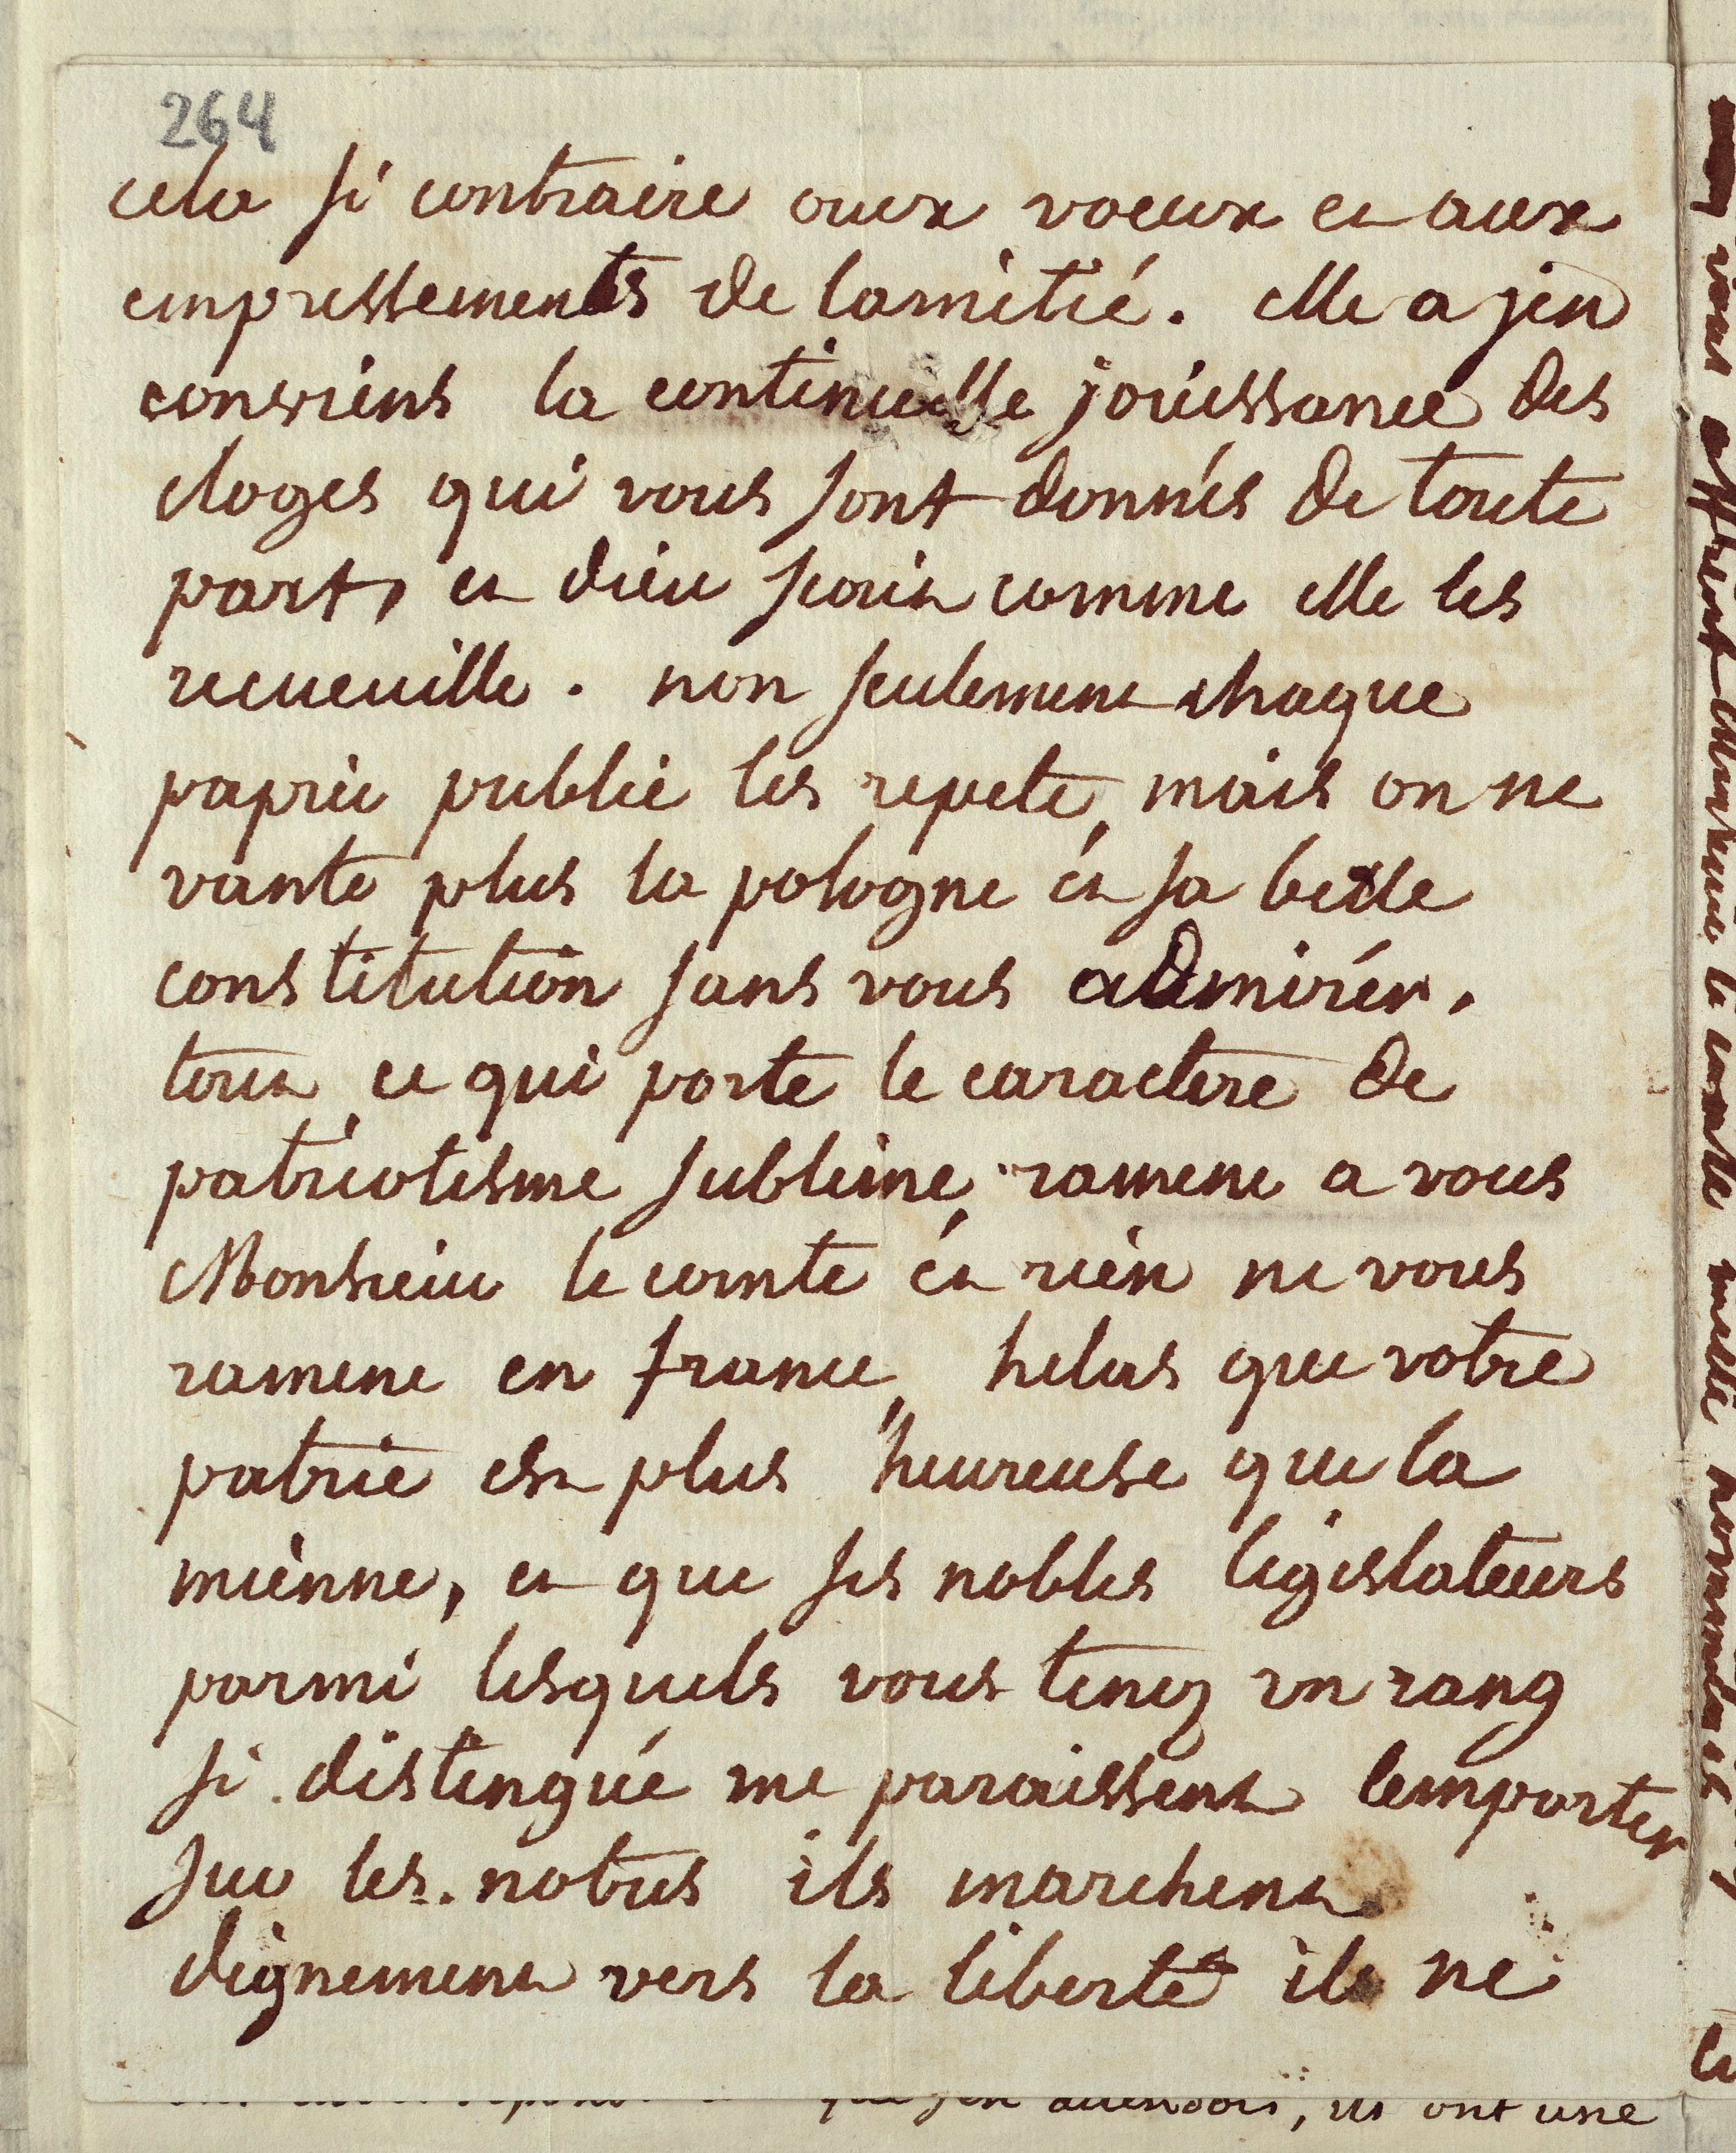 264
cela si contraire aux voeux et aux
empressements de lamitié. elle a jen
conviens la continuelle jouissance des
eloges qui vous sont donnés de toute
part, et dieu scait comme elle les
recueuille. non seulement chaque
papier public les repete, mais on ne
vante plus la pologne et sa belle
constitution sans vous admirér.
tout ce qui porte le caractere de
patriotisme sublime, ramene a vous
Monsieur le comte et rien ne vous
ramene en france, helas que votre
patrie est plus heureuse que la
miènne, et que ses nobles legislateurs
parmi lesquels vous tenez un rang
si distingué me paraissent lemporter
sur les notres ils marchent
dignement vers la liberté ils ne
que jen attendois, ils ont une